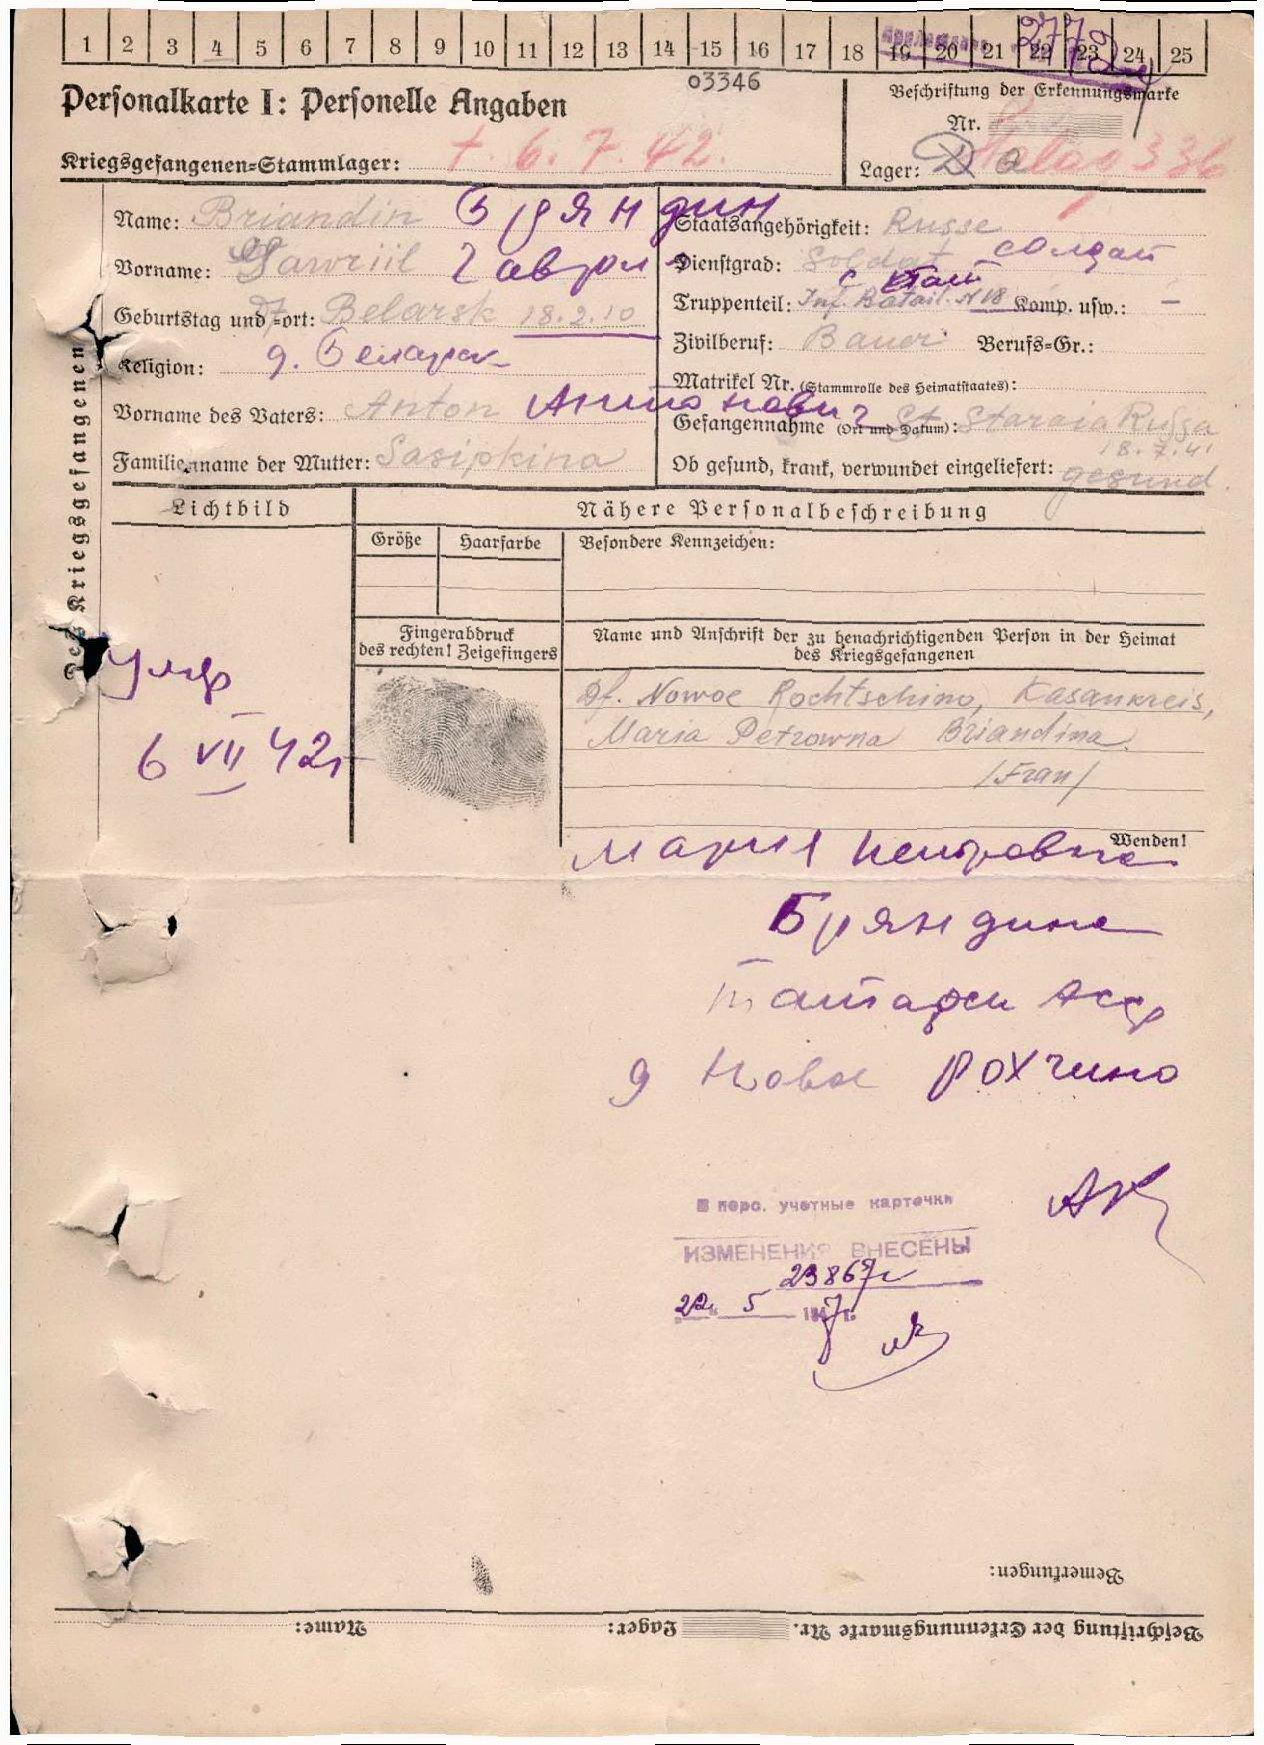 1 2 3 4 5 6 7 8 9 10 11 12 13 14 15 16 17 18 19 20 21 22 23 24 25
03346
Personalkarte I: Personelle Angaben
Beschriftung der Erkennungsmarke
Nr.
Kriegsgefangenen-Stammlager: † 6.7.42.
Lager: Stalag 336
Des Kriegsgefangenen
Name: Briandin Бряндин
Vorname: Gawriil Гаврил
Geburtstag und -ort: Df. Belarsk 18.2.10
Religion: д. Беларск
Vorname des Vaters: Anton Антонович
Familienname der Mutter: Sasipkina
Staatsangehörigkeit: Russe
Dienstgrad: Soldat солдат
Truppenteil: Inf. Batail. N 18 Komp. usw.: —
Zivilberuf: Bauer Berufs-Gr.:
Matrikel Nr. (Stammrolle des Heimatstaates):
Gefangennahme (Ort und Datum): St. Staraia Russa
18.7.41
Ob gesund, krank, verwundet eingeliefert: gesund.
Lichtbild
Nähere Personalbeschreibung
Größe Haarfarbe Besondere Kennzeichen:
Fingerabdruck
des rechten! Zeigefingers
Name und Anschrift der zu benachrichtigenden Person in der Heimat
des Kriegsgefangenen
Df. Nowoe Rochtschino, Kasankreis,
Maria Petrowna Briandina.
/Frau/
умер
6 VII 42г
Wenden!
Мария Петровна
Бряндина
Татарск АССР
д Новое Рохчино
АК
В перс. учетные карточки
ИЗМЕНЕНИЯ ВНЕСЕНЫ
22 5 1947г.
Bemerkungen:
Beschriftung der Erkennungsmarke Nr. Lager: Name: